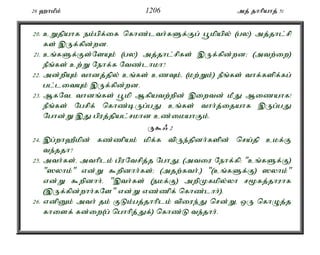 26 ஹாமீம் 1206 அத் தாரியாத் 51
20. உறுதியாக நம்பிக்கை கொண்டவர்களுக்குப் பூமியில் (பல) அத்தாட்சி
கள் இருக்கின்றன.
21. உங்களுக்குள்ளேயும் (பல) அத்தாட்சிகள் இருக்கின்றன: (அவற்றை)
நீங்கள் உற்று நோக்க வேண்டாமா?
22. அன்றியும் வானத்தில் உங்கள் உணவும், (மற்றும்) நீங்கள் வாக்களிக்கப்
பட்டவையும் இருக்கின்றன.
23. ஆகவே, வானங்கள் பூமி ஆகியவற்றின் இறைவன் மீது ஆணையாக!
நீங்கள் பேசிக் கொண்டிருப்பது உங்கள் வார்த்தையாக இருப்பது
போன்று இது பிரத்தியட்சமான உண்மையாகும்.
ருகூஃ 2
24. இப்றாஹீமின் கண்ணியம் மிக்க விருந்தினர்களின் செய்தி உமக்கு
வந்ததா?
25. அவர்கள், அவரிடம் பிரவேசித்த போது, (அவரை நோக்கி) "உங்களுக்கு)
"ஸலாம்" என்று கூறினார்கள்; (அதற்கவர்,) "(உங்களுக்கு) ஸலாம்"
என்று கூறினார். "இவர்கள் (நமக்கு) அறிமுகமில்லா சமூகத்தாராக
(இருக்கின்றார்களே" என்று எண்ணிக் கொண்டார்).
26. எனினும் அவர் தம் குடும்பத்தாரிடம் விரைந்து சென்று, ஒரு கொழுத்த
காளைக் கன்றை(ப் பொரித்துக்) கொண்டு வந்தார்.